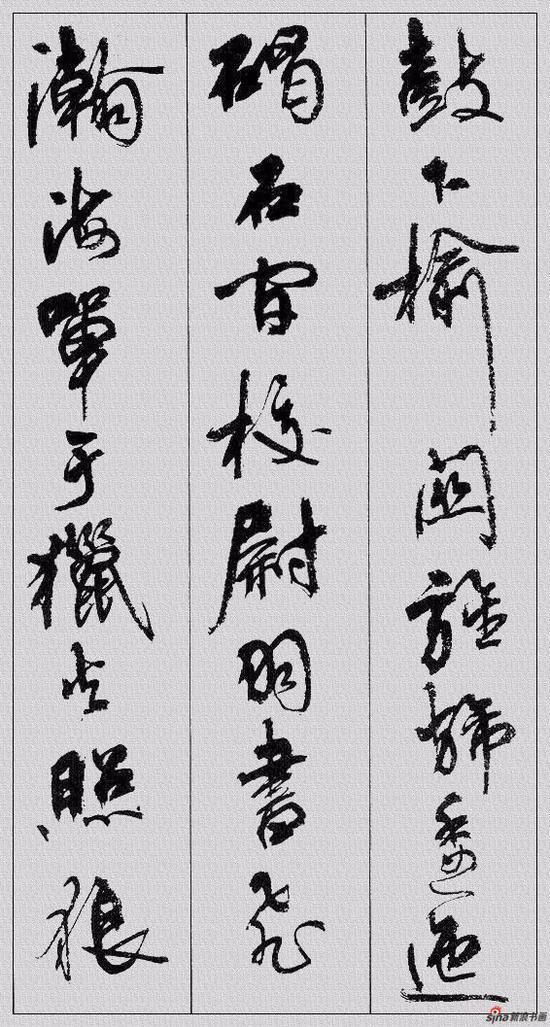 鼓下榆關旌旆逶迤
碣石間校尉羽書飛
瀚海單于獵火照狼
sina新浪书画